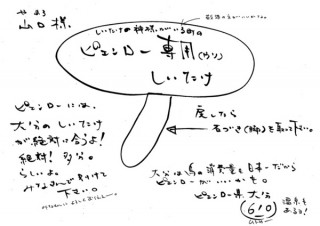 山口様
しいたけの神様がいる町の
ピエンロー専用(やり)
しいたけ
ピエンローには、
大分のしいたけ
が絶対に合うよ!
絶対!多分。
らしいよ。
下さい。
戻したら
石づき(脚)を取って下さい。
大分は鳥の消費量も日本一だから
ピエンローがいいかも。
ピエンロー県大分
温泉も
あるよ!